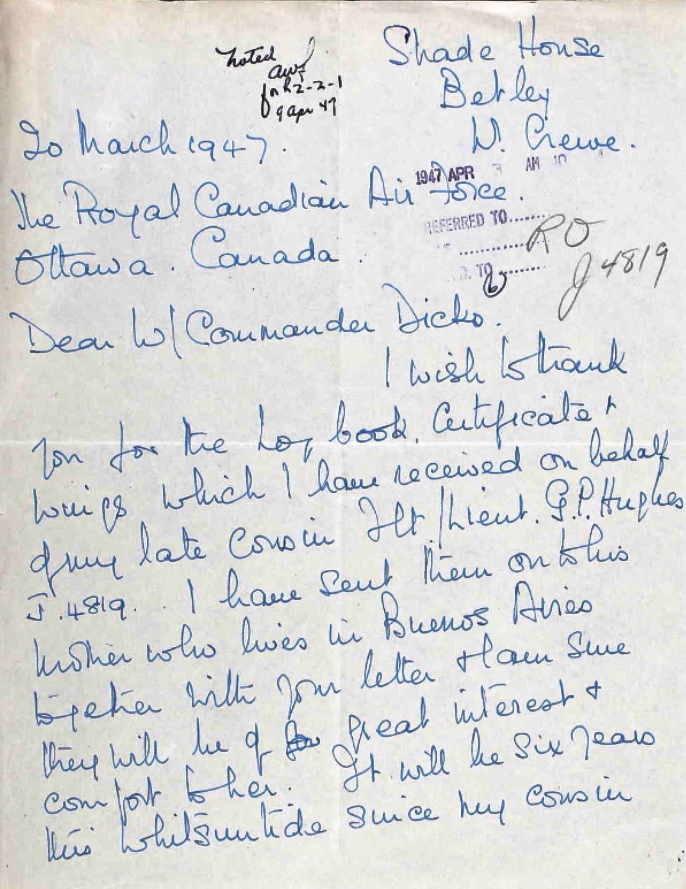 noted
9 Apr 47
Shade House
Betley
Nr. Crewe.
20 March 1947.
1947 APR 3 AM 10
The Royal Canadian Air Force.
REFERRED TO
RO
J 4819
TO
Ottawa. Canada.
Dear W/Commander Dicko.
I wish to thank
you for the Log book, Certificate +
wings which I have received on behalf
of my late Cousin Flt/Lieut. G.P. Hughes
J.4819. I have sent them on to his
mother who lives in Buenos Aires
together with your letter + I am sure
they will be of great interest +
comfort to her. It will be six years
this Whitsuntide since my cousin